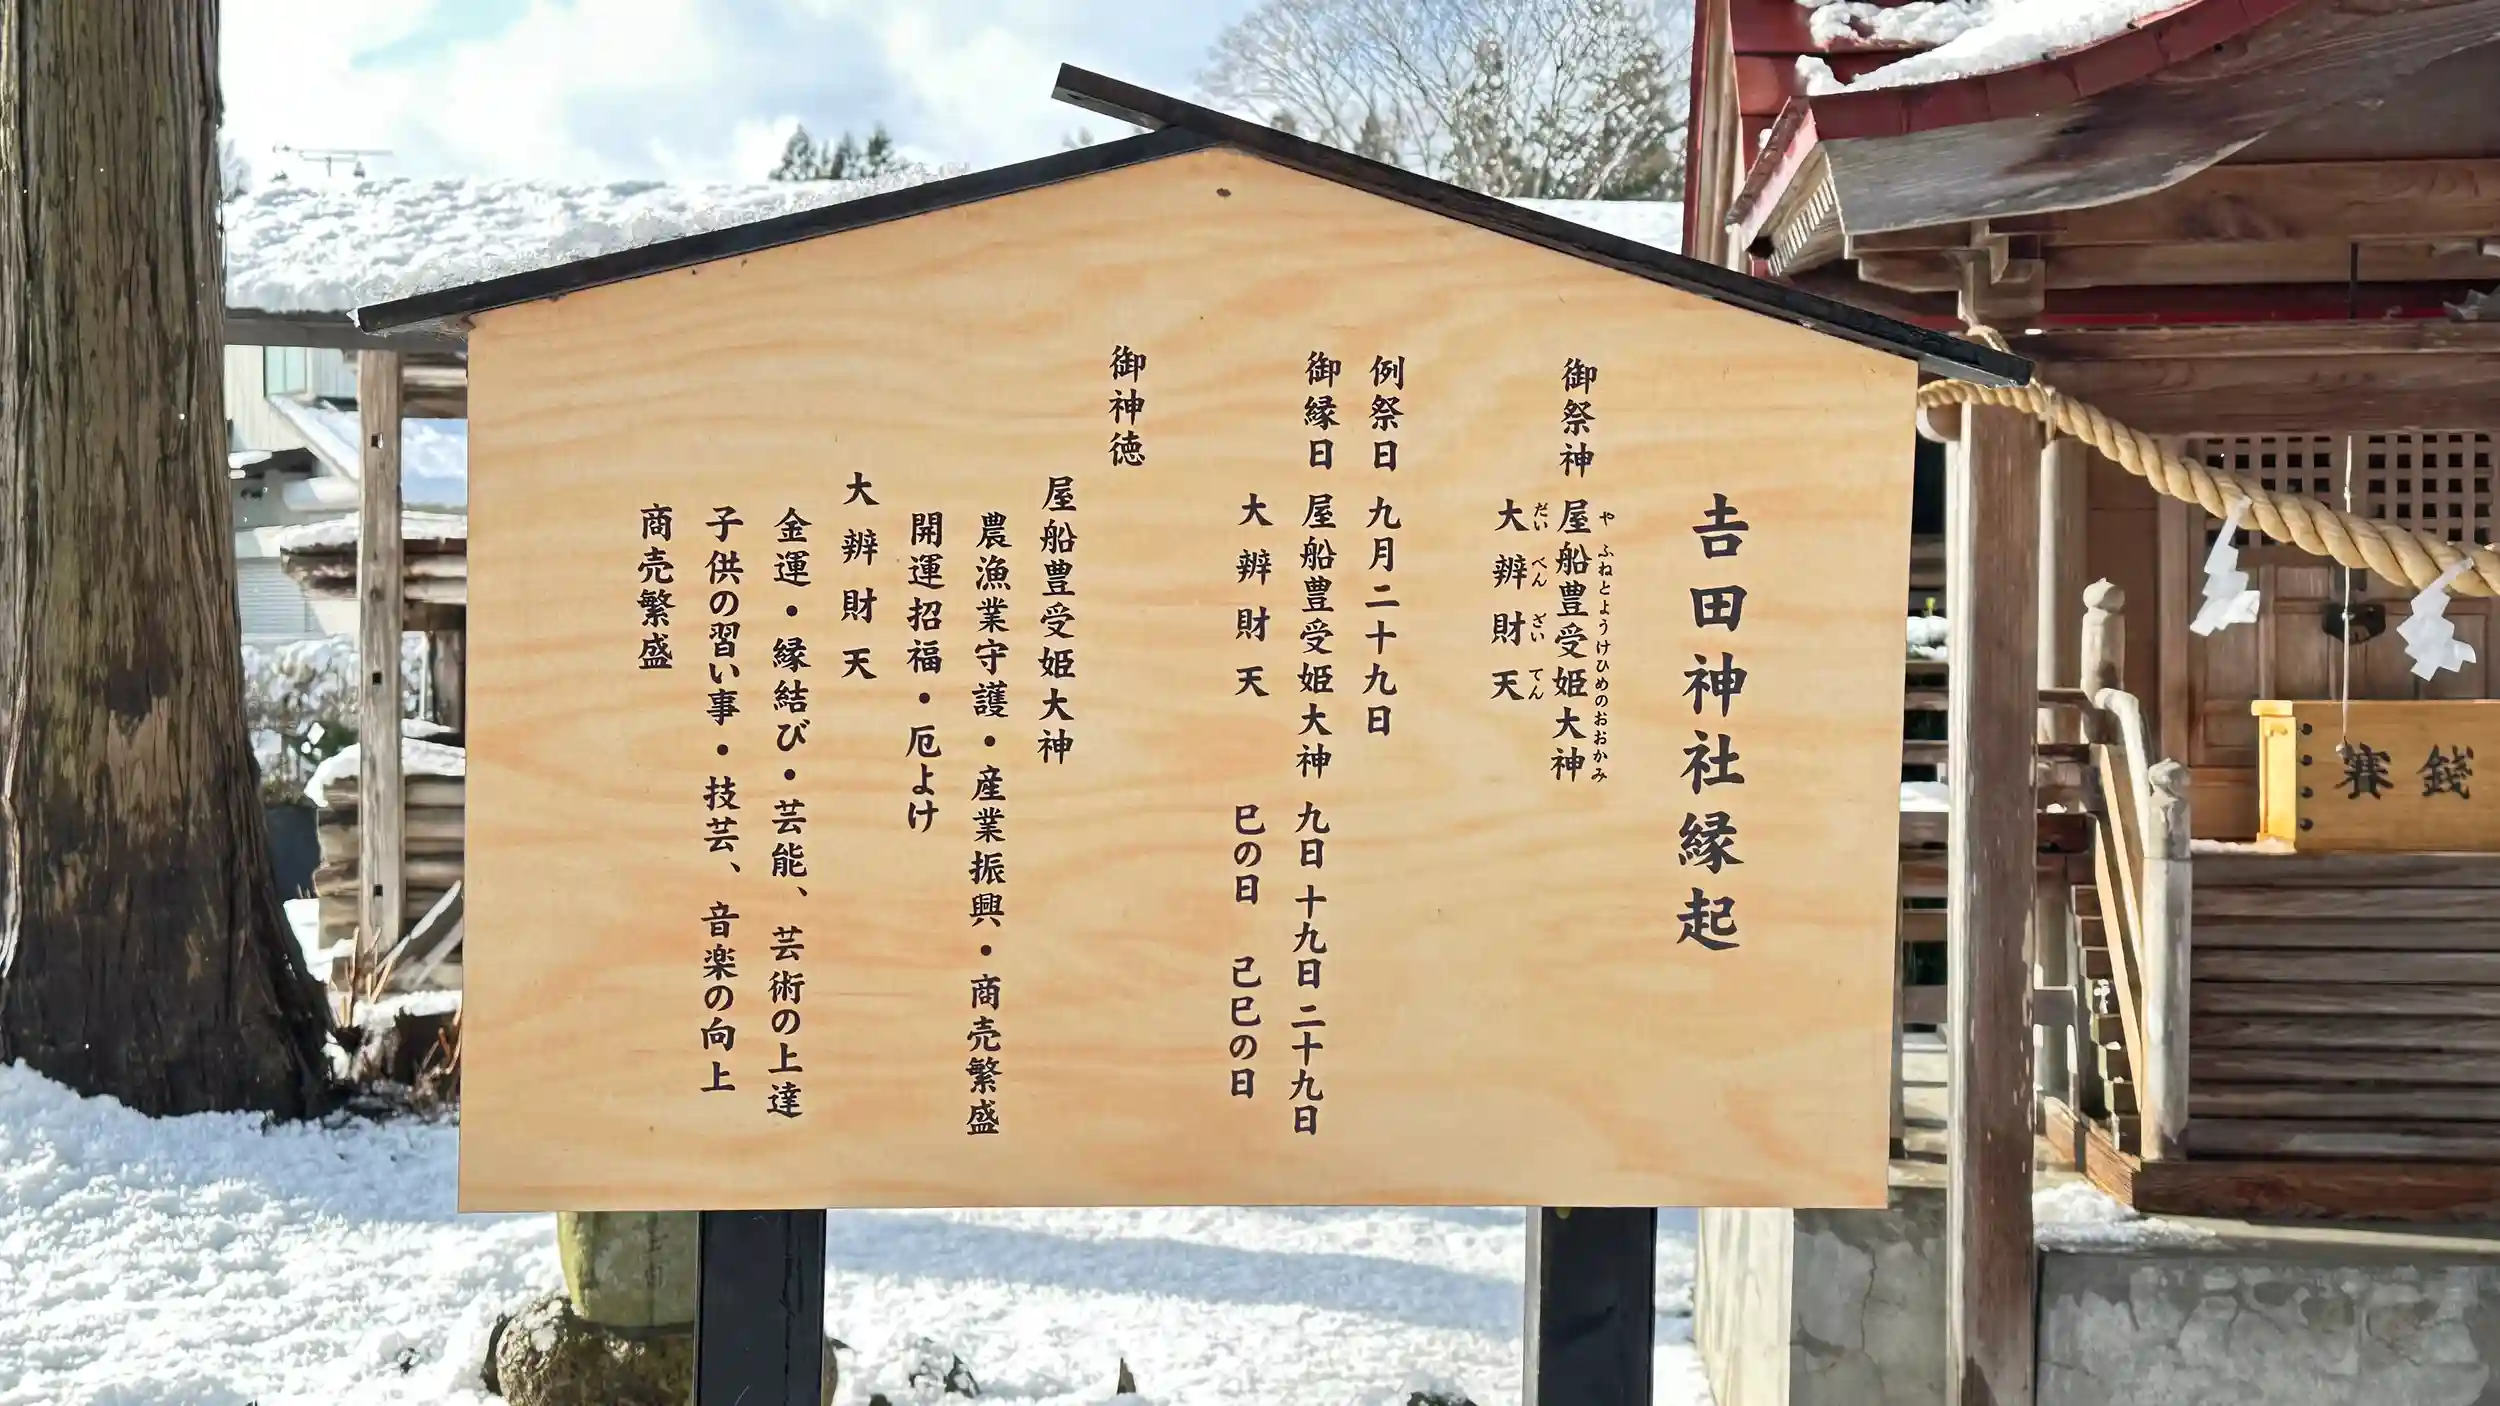 𠮷田神社縁起
御祭神 屋船豊受姫大神
やふねとようけひめのおおかみ
大辨財天
だいべんざいてん
例祭日 九月二十九日
御縁日 屋船豊受姫大神 九日 十九日 二十九日
大辨財天 巳の日 己巳の日
御神徳
屋船豊受姫大神
農漁業守護・産業振興・商売繁盛
開運招福・厄よけ
大辨財天
金運・縁結び・芸能、芸術の上達
子供の習い事・技芸、音楽の向上
商売繁盛
賽錢